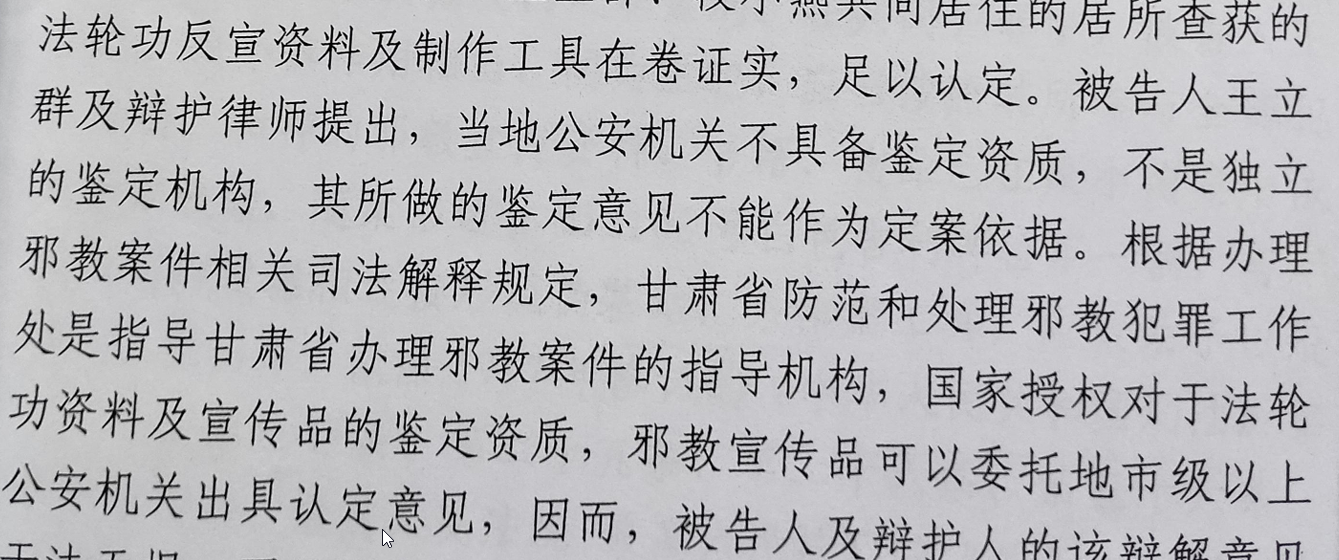 燕共同居住的居所查获的
法轮功反宣资料及制作工具在卷证实，足以认定。被告人王立
群及辩护律师提出，当地公安机关不具备鉴定资质，不是独立
的鉴定机构，其所做的鉴定意见不能作为定案依据。根据办理
邪教案件相关司法解释规定，甘肃省防范和处理邪教犯罪工作
处是指导甘肃省办理邪教案件的指导机构，国家授权对于法轮
功资料及宣传品的鉴定资质，邪教宣传品可以委托地市级以上
公安机关出具认定意见，因而，被告人及辩护人的该辩解意见